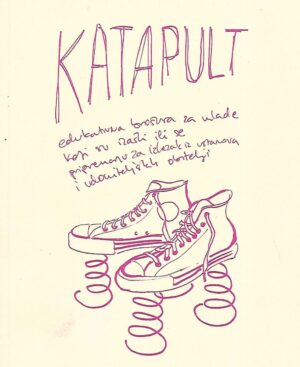 KATAPULT
edukativna brošura za mlade
koji su izašli ili se
pripremaju za izlazak iz ustanova
i udomiteljskih obitelji